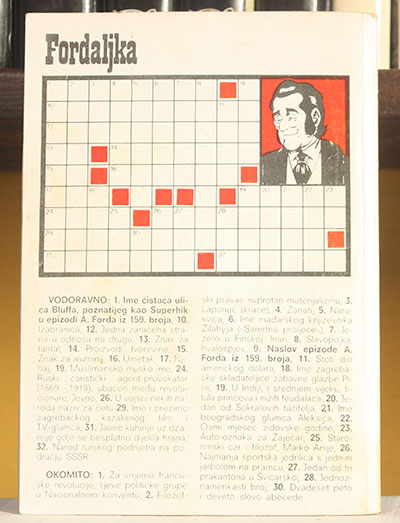 Fordaljka
1 2 3 4 5 6 7 8 9
10 11
12
13 14
15 16
17 18 19 20 21 22 23
24 25 26 27 28
29 30
31 32
VODORAVNO: 1. Ime čistača uli-
ca Bluffa, poznatijeg kao Superhik
u epizodi A. Forda iz 159. broja, 10.
Izabranica, 12. Jedna zaraćena stra-
na u odnosu na drugu, 13. Znak za
tantal, 14. Proizvodi, tvorevine, 15.
Znak za aluminij, 16. Umetak, 17. Nji-
haj, 19. Muslimansko muško ime, 24.
Ruski čaristički agent-provokator
(1869-1918), ubačen među revolu-
cionare, Jevno, 26. U vojsci nekih na-
roda naziv za četu 29. Ime i prezime
zagrebačkog kazališnog, film. i
TV-glumca, 31. Javne kuhinje uz dža-
mije gdje se besplatno dijelila hrana,
32. Narod turskog podrijetla na po-
dručju SSSR.
OKOMITO: 1. Za vrijeme francu-
ske revolucije, lijeve političke grupe
u Nacionalnom konventu, 2. Filozof-
ski pravac suprotan materijalizmu, 3.
Laponac (kraće), 4. Zanati, 5. Nara-
kvica, 6. Ime mađarskog književnika
Zilahyja («Samrtno proljeće»), 7. Je-
zero u Finskoj, Inari, 8. Slavopojka,
hvalospjev, 9. Naslov epizode A.
Forda iz 159. broja, 11. Stoti dio
američkog dolara, 18. Ime zagrebač-
ke skladateljice zabavne glazbe Pi-
lis, 19. U Indiji, i srednjem vijeku, ti-
tula prinčeva i nizih feudalaca, 20. Je-
dan od Sokratovih tužitelja, 21. Ime
beogradskog glumca Aleksića, 22.
Osmi mjesec židovske godine, 23.
Auto-oznaka za Zaječar, 25. Staro-
rimski car i filozof, Marko Anije, 26.
Najmanja sportska jedrilica s jednim
jarbolom na pramcu, 27. Jedan od tri
prakantona u Švicarskoj, 28. Jedno-
znamenkasti broj, 30. Dvadeset peto
i deveto slovo abecede.